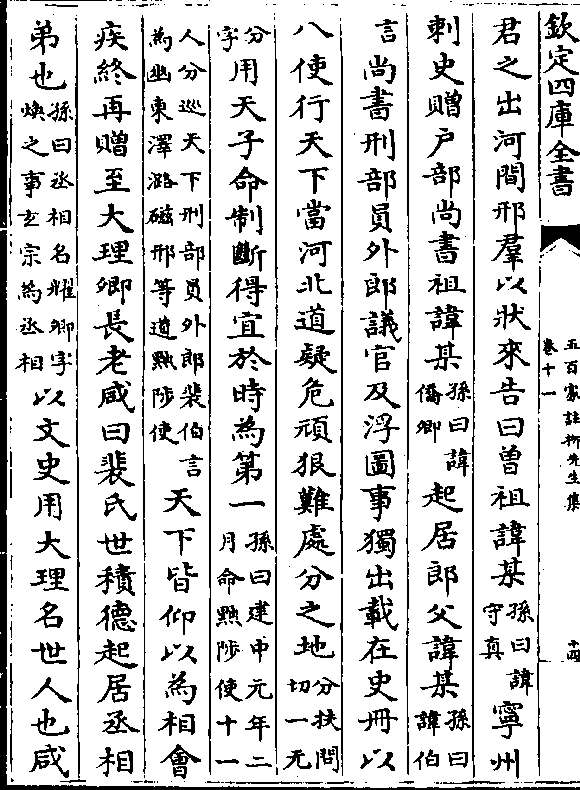 欽定四庫全書
五百家註柳先生集
卷十一
十四
君之出河間邢羣以狀來告曰曾祖諱某孫曰諱守真寧州
刺史贈户部尚書祖諱某孫曰諱僑卿起居郎父諱某孫曰諱伯
言尚書刑部員外郎議官及浮圖事獨出載在史冊以
八使行天下當河北道疑危頑狠難處分之地分扶問切一无
分字用天子命制斷得宜於時為第一孫曰建中元年二月命黜陟使十一
人分巡天下刑部員外郎裴伯言為幽東澤潞磁邢等道黜陟使天下皆仰以為相會
疾終再贈至大理卿長老咸曰裴氏世積德起居丞相
弟也孫曰丞相名耀卿字煥之事玄宗為丞相以文史用大理名世人也咸